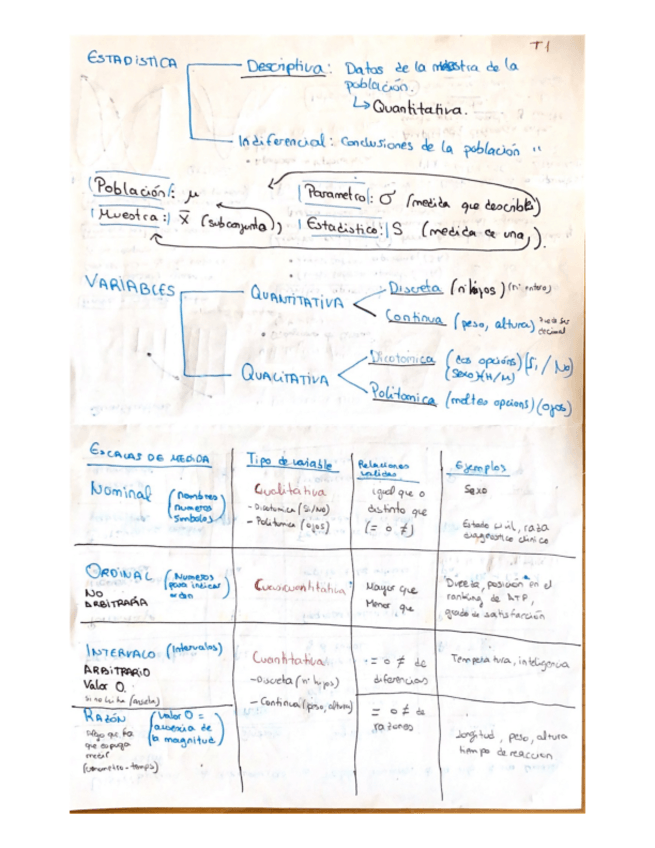 T1
ESTADISTICA
Descriptiva: Datos de la mestra de la
población.
↳ Quantitativa.
Indiferencial: Conclusiones de la población "
Población: μ
Parametro: σ (medida que describe)
Muestra: x̄ (subconjunto)
Estadistico: S (medida de una).
VARIABLES
QUANTITATIVA
Discreta (nº hijos) (nº entero)
Continua (peso, altura) decimal
QUALITATIVA
Dicotómica (dos opcións) (Si / No)
(sexo) (H/M)
Politomica (moltes opcions) (ojos)
ESCALAS DE MEDIDA
Tipo de variable
Relaciones validas
Ejemplos
Nominal (nombres numeros simbolos)
Cualitativa
- Dicotomica (Si/No)
- Politomica (ojos)
igual que o
distinto que
(= o ≠)
Sexo
Estado civil, raza
diagnostico clinico
ORDINAL (Numeros para indicar orden
NO
ARBITRARIA
Cuasicuantitativa
Mayor que
Menor que
Dureza, posición en el
ranking de ATP,
grado de satisfacción
INTERVALO (Intervalos)
ARBITRARIO
Valor 0.
Cuantitativa
- Discreta (nº hijos)
- Continua (peso, altura)
= o ≠ de
diferencias
Temperatura, inteligencia
RAZÓN (Valor 0 = ausencia de la magnitud)
= o ≠ de
razones
longitud, peso, altura
tiempo de reaccion